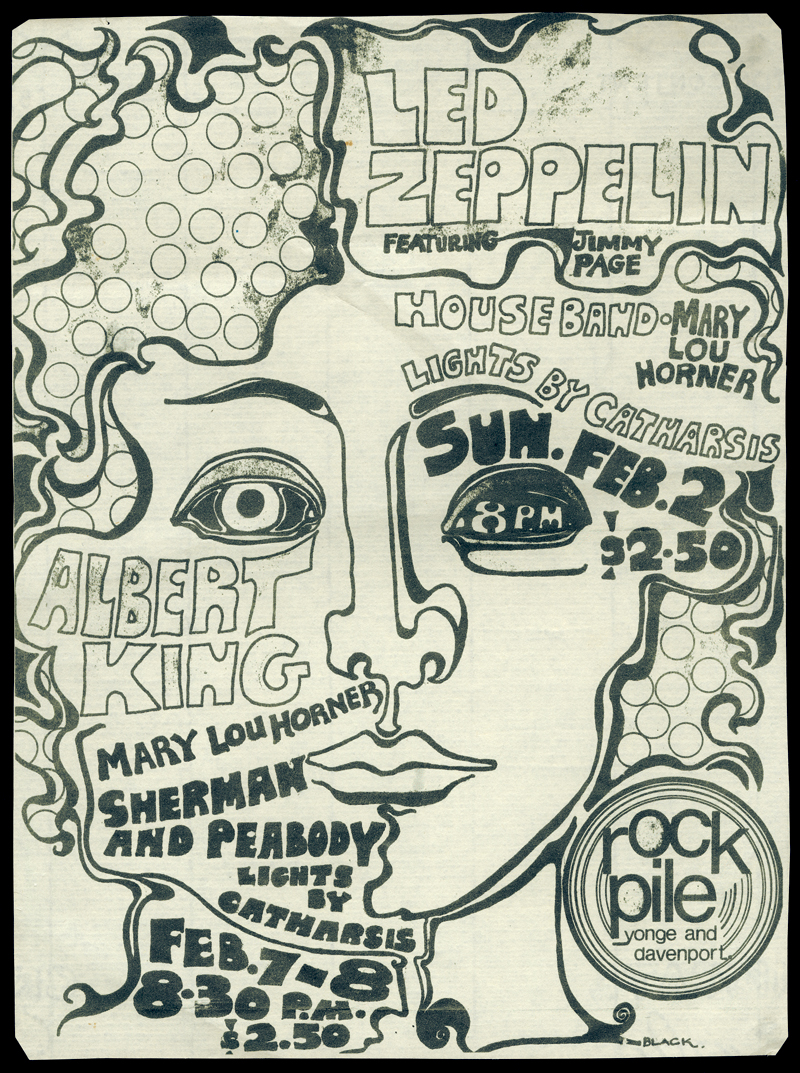 LED
ZEPPELIN
FEATURING JIMMY
PAGE
HOUSE BAND · MARY
LOU
HORNER
LIGHTS BY CATHARSIS
SUN. FEB. 2
8 P.M.
$2.50
ALBERT
KING
MARY LOU HORNER
SHERMAN
AND PEABODY
LIGHTS
BY
CATHARSIS
FEB. 7-8
8.30 P.M.
$2.50
rock
pile
yonge and
davenport.
BLACK.